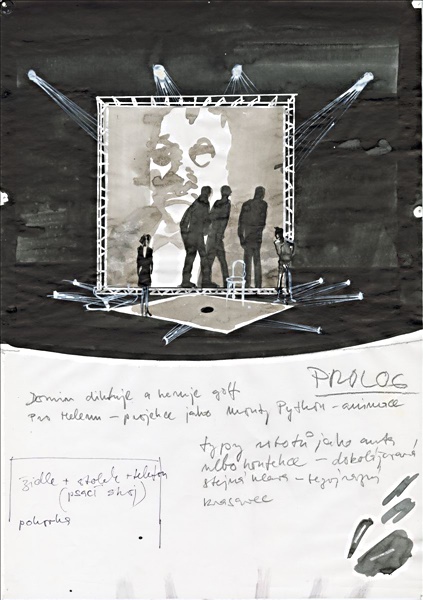 PROLOG
Domin diktuje a hraje golf
pro Helenu – projekce jako Monty Python – animace
typy robotů jako auta,
nebo konfekce –
stejná hlava –
krasavec
židle + stolek + telefon
(psací stroj)
pohovka